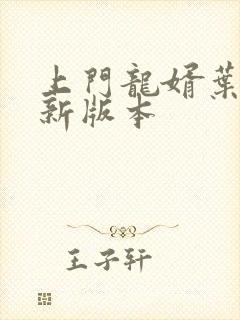 上門龍婿葉
新版本
王子轩